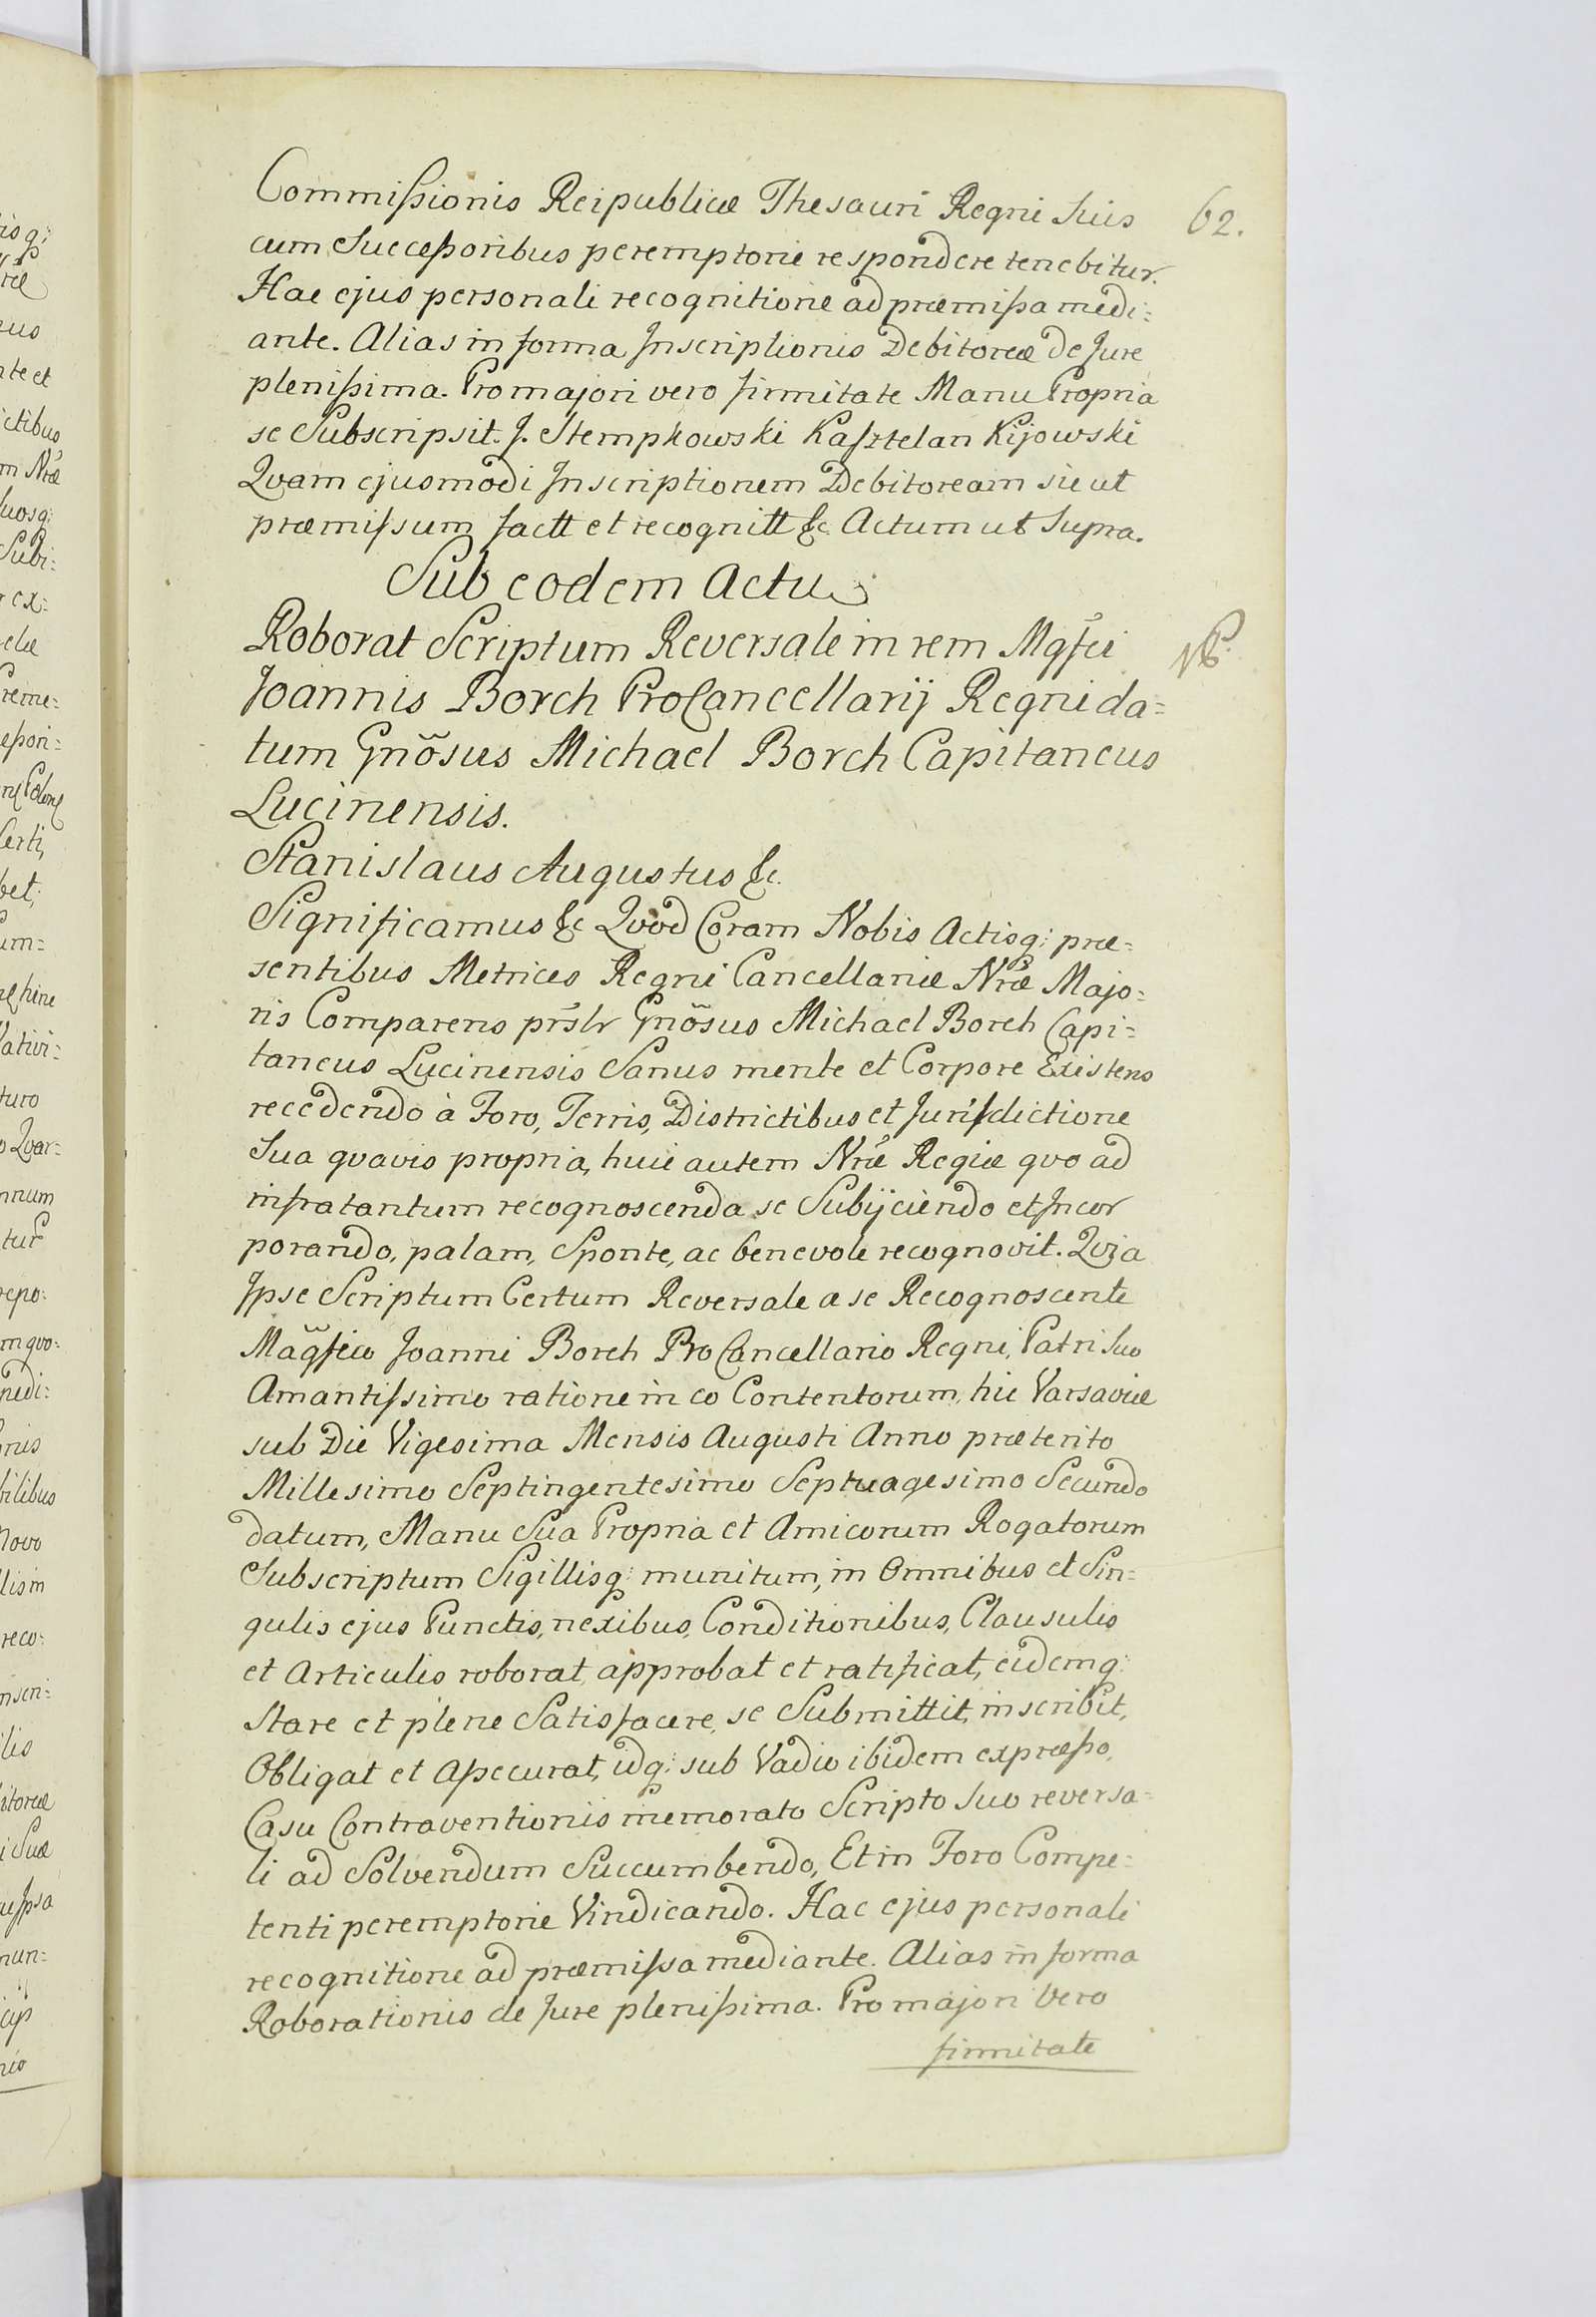 Commissionis Reipublicæ Thesauri Regni Suis
62.
cum Successoribus peremptorie respondere tenebitur.
Hac ejus personali recognitione ad præmissa medi=
ante. Alias in forma Inscriptionis Debitoreæ de Jure
plenissima. Pro majori vero firmitate Manu Propria
se Subscripsit. J. Stempkowski Kasztelan Kijowski
Qvam ejusmodi Inscriptionem Debitoream sic ut
præmissum factt et recognitt &c. Actum ut Supra.
Sub eodem Actu
Roborat Scriptum Reversale in rem Mgfci
NB.
Joannis Borch ProCancellarij Regni da=
tum Gnõsus Michael Borch Capitaneus
Lucinensis.
Stanislaus Augustus &c.
Significamus &c Qvod Coram Nobis Actisq; præ=
sentibus Metrices Regni Cancellariæ Nræ Majo=
ris Comparens prslr Gnõsus Michael Borch Capi=
taneus Lucinensis Sanus mente et Corpore Existens
recedendo à Foro, Terris, Districtibus et Jurisdictione
Sua qvavis propria, huic autem Nræ Regiæ qvo ad
infra tantum recognoscenda se Subijciendo et Incor
porando, palam, Sponte, ac benevole recognovit. Qvia
Ipse Scriptum Certum Reversale a se Recognoscente
Magfico Joanni Borch ProCancellario Regni, Patri Suo
Amantissimo ratione in eo Contentorum, hic Varsaviæ
sub Die Vigesima Mensis Augusti Anno præterito
Millesimo Septingentesimo Septuagesimo Secundo
datum, Manu Sua Propria et Amicorum Rogatorum
Subscriptum Sigillisq; munitum, in Omnibus et Sin=
gulis ejus Punctis, nexibus, Conditionibus, Clausulis
et Articulis roborat, approbat et ratificat, eidemq;
Stare et plene Satisfacere, se Submittit, inscribit,
Obligat et Assecurat, idq; sub Vadio ibidem expresso,
Casu Contraventionis memorato Scripto Suo reversa=
li ad Solvendum Succumbendo, Et in Foro Compe=
tenti peremptorie Vindicando. Hac ejus personali
recognitione ad præmissa mediante. Alias in forma
Roborationis de Jure plenissima. Pro majori vero
firmitate